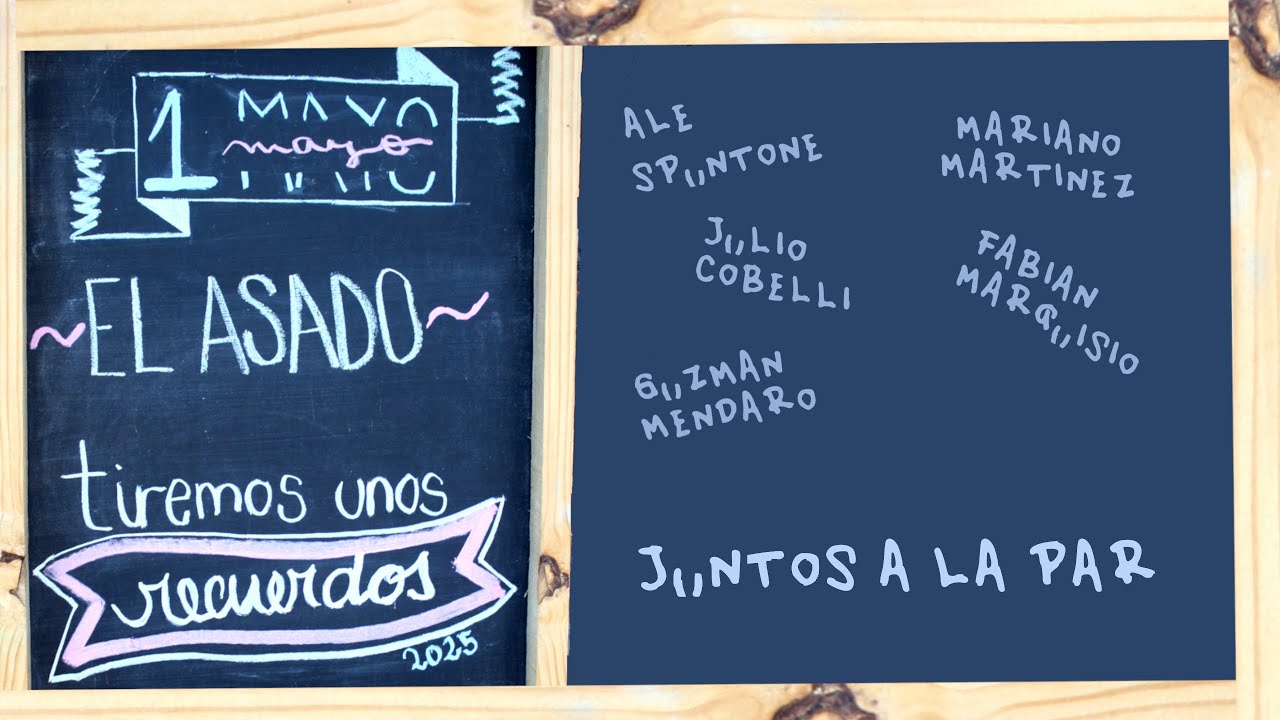 1 MAYO
mayo
EL ASADO
tiremos unos
recuerdos
2025
ALE
SPUNTONE
MARIANO
MARTINEZ
JULIO
COBELLI
FABIAN
MARQUISIO
GUZMAN
MENDARO
JUNTOS A LA PAR